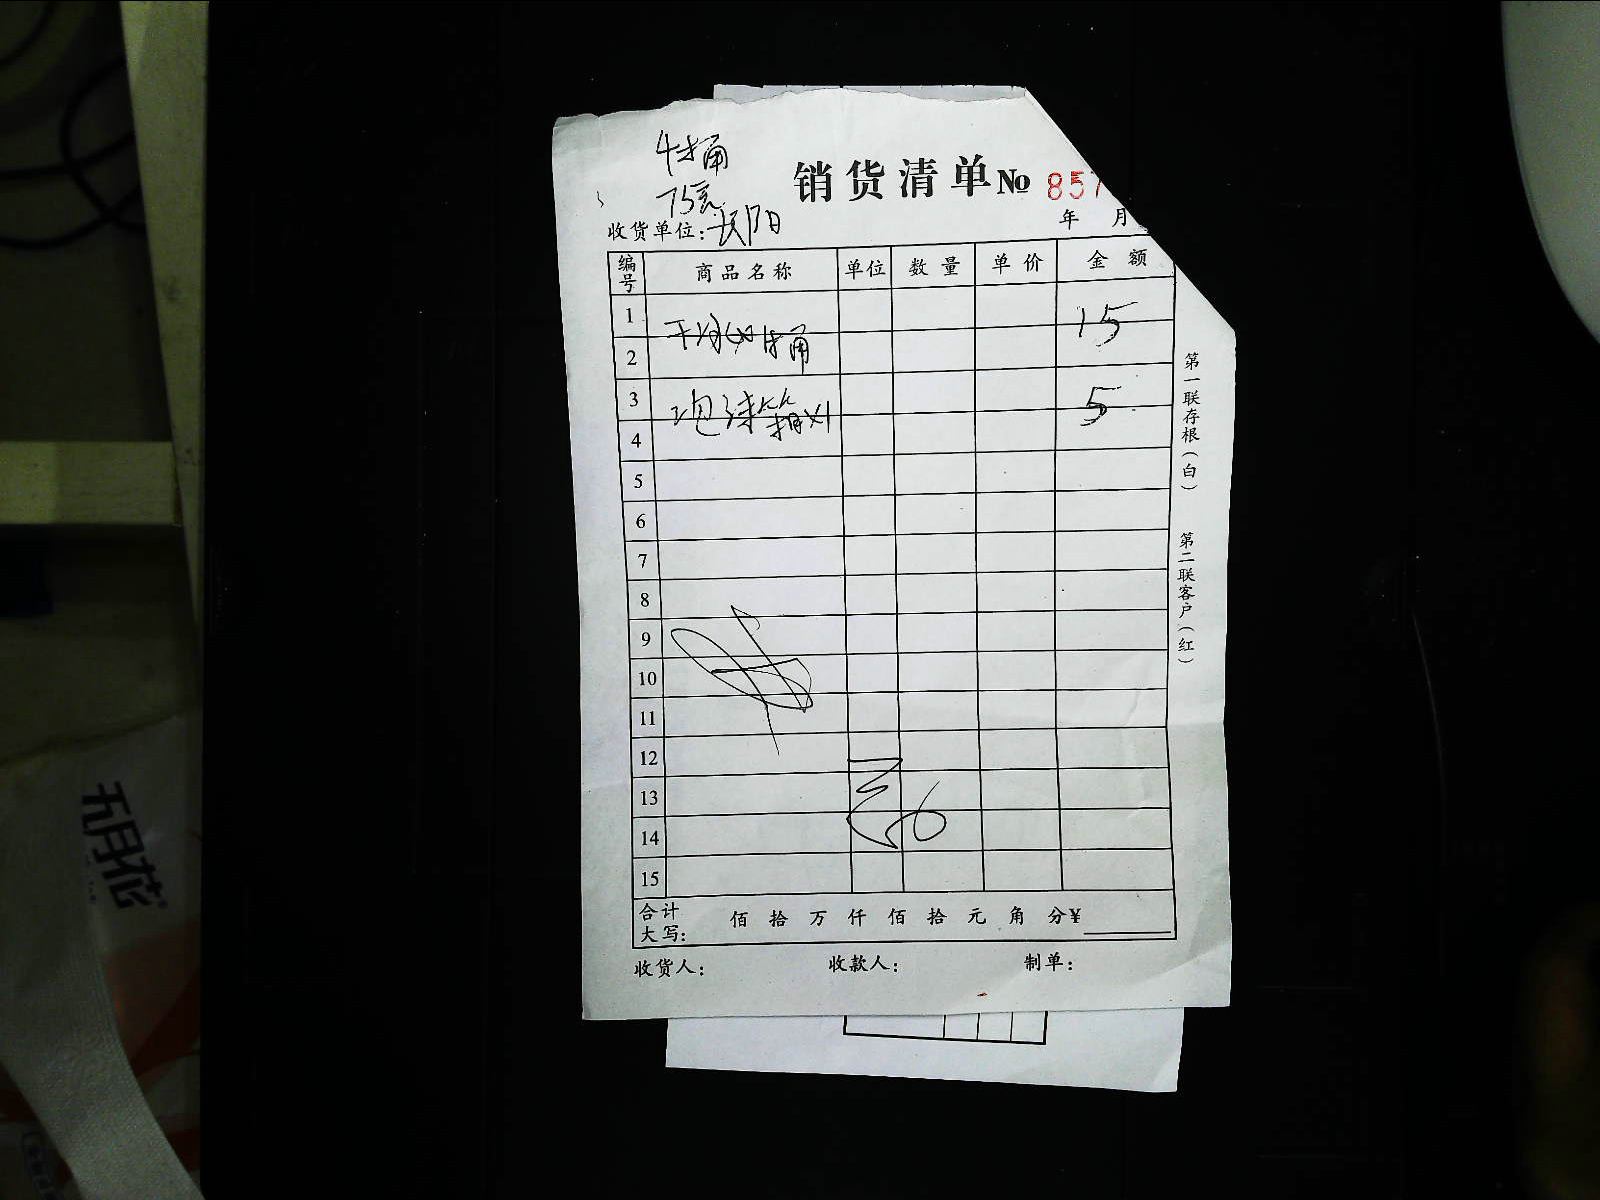 4桶
75元
销货清单 № 857
收货单位: 长阳
年 月
编号 商品名称 单位 数量 单价 金额
1
15
2
3
5
4
5
6
7
8
9
10
11
12
13
14
15
合计大写: 佰 拾 万 仟 佰 拾 元 角 分¥
收货人: 收款人: 制单:
第一联存根(白)
第二联客户(红)
五月花